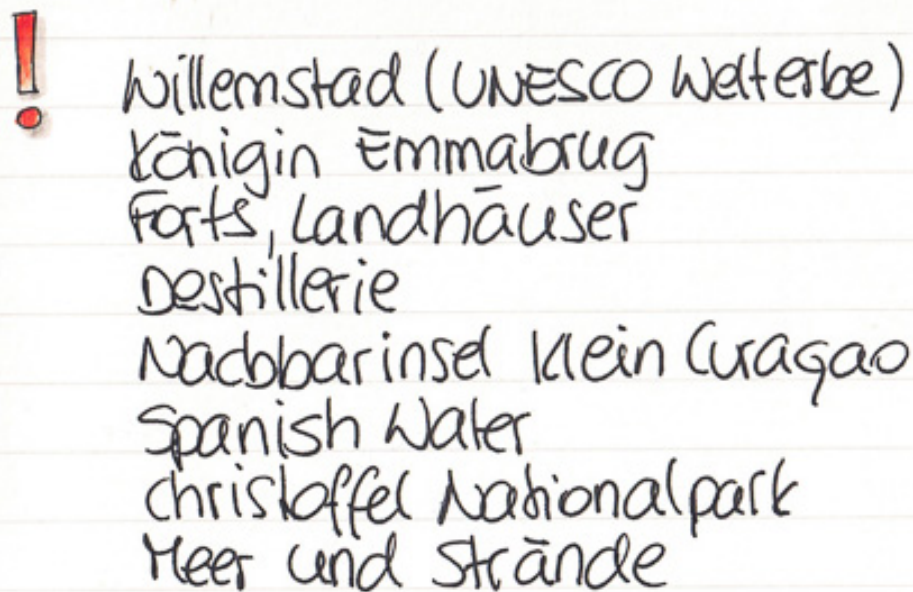 !
Willemstad (UNESCO Welterbe)
Königin Emmabrug
Forts, Landhäuser
Destillerie
Nachbarinsel Klein Curaçao
Spanish Water
Christoffel Nationalpark
Meer und Strände